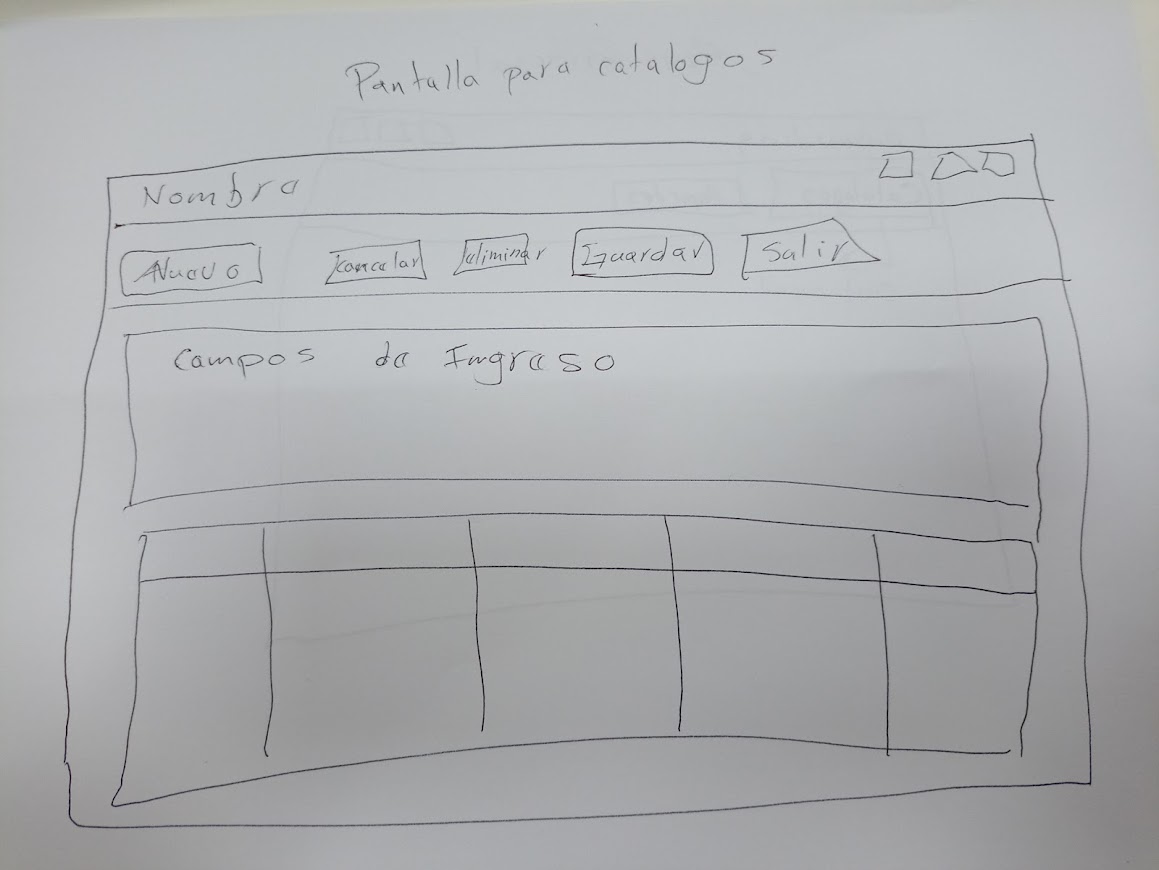 Pantalla para catalogos
Nombre
Nuevo cancelar eliminar Guardar Salir
Campos de Ingreso